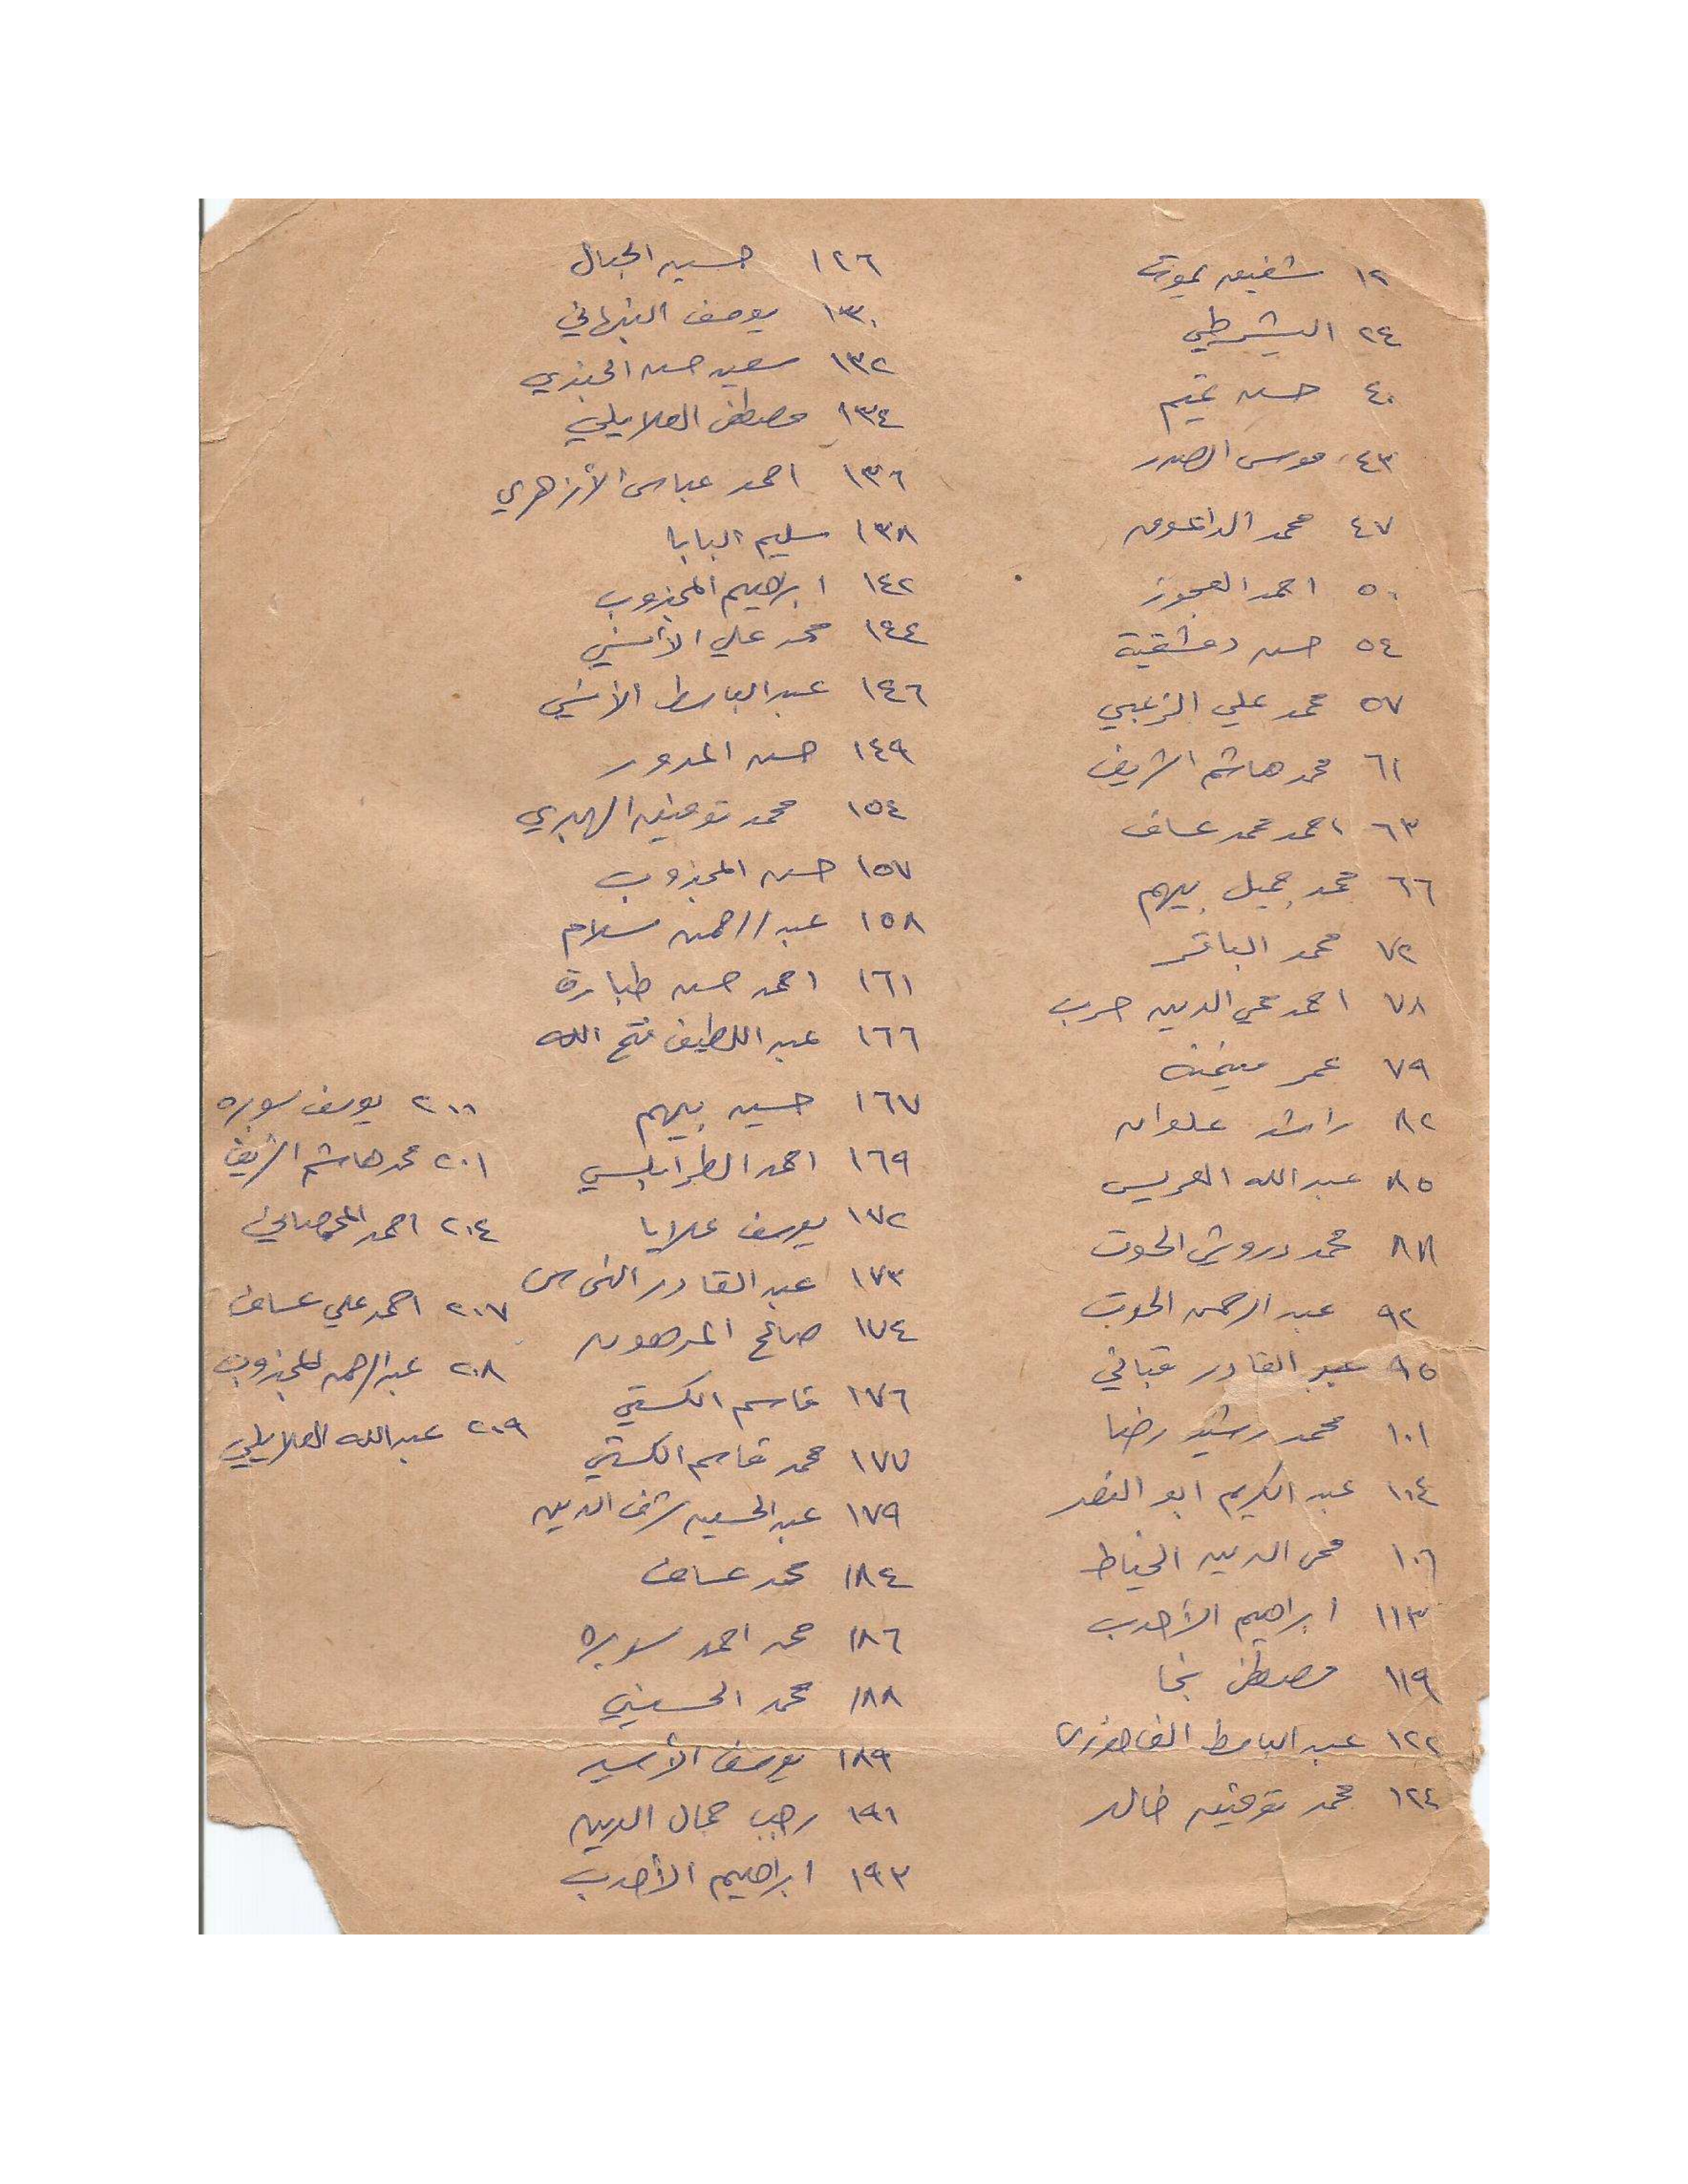 ١٢ شفيق يموت
٢٤ اليشرطي
٤٠ حسن تميم
٤٣ موسى الصدر
٤٧ محمد الداعوق
٥٠ احمد العجوز
٥٤ حسن دمشقية
٥٧ محمد علي الزعبي
٦١ محمد هاشم الشريف
٦٣ احمد محمد عساف
٦٦ محمد جميل بيهم
٧٢ محمد الباقر
٧٨ احمد محي الدين حرب
٧٩ عمر ميخنة
٨٢ راشد علوان
٨٥ عبد الله العريس
٨٨ محمد درويش الحوت
٩٢ عبد الرحمن الحوت
٩٥ عبد القادر قباني
١٠١ محمد رشيد رضا
١٠٤ عبد الكريم ابو النصر
١٠٦ محي الدين الخياط
١١٣ ابراهيم الأحدب
١١٩ مصطفى نجا
١٢٢ عبد الباسط الفاخوري
١٢٤ محمد توفيق خالد
١٢٦ حسين الجبال
١٣٠ يوسف النبهاني
١٣٢ سعيد حسن الجندي
١٣٤ مصطفى العلايلي
١٣٦ احمد عباس الأزهري
١٣٨ سليم البابا
١٤٢ ابراهيم المجذوب
١٤٤ محمد علي الأنسي
١٤٦ عبد الباسط الأنسي
١٤٩ حسن المدور
١٥٤ محمد توفيق الهبري
١٥٧ حسن المجذوب
١٥٨ عبد الرحمن سلام
١٦١ احمد حسن طبارة
١٦٦ عبد اللطيف فتح الله
١٦٧ حسين بيهم
١٦٩ احمد الطرابلسي
١٧٢ يوسف علايا
١٧٣ عبد القادر النحاس
١٧٤ صالح المدهون
١٧٦ قاسم الكستي
١٧٧ محمد قاسم الكستي
١٧٩ عبد الحسين شرف الدين
١٨٤ محمد عساف
١٨٦ محمد احمد سوبره
١٨٨ محمد الحسيني
١٨٩ يوسف الأسير
١٩١ رجب جمال الدين
١٩٣ ابراهيم الأحدب
٢٠٠ يوسف سوبره
٢٠١ محمد هاشم الشريف
٢٠٤ احمد المحمصاني
٢٠٧ احمد علي عساف
٢٠٨ عبد الرحمن المجذوب
٢٠٩ عبد الله العلايلي